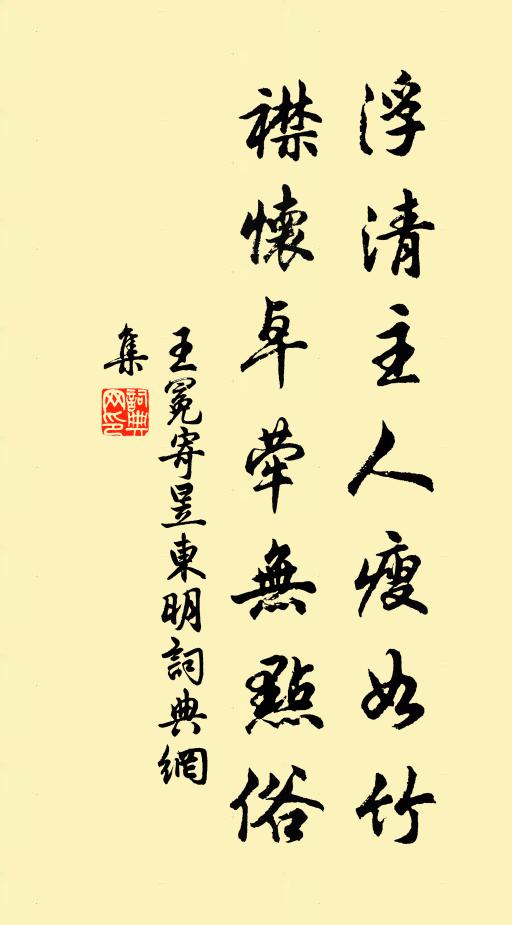 浮清主人瘦如竹
襟懷卓犖無點俗
王冕寄昱東明詞典網
集
詞典
网印